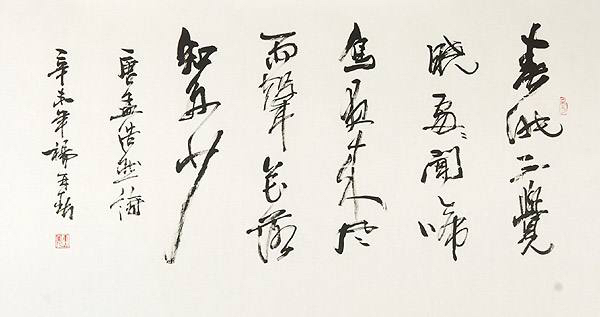 春眠不覺
曉處々聞啼
鳥夜來風
雨聲花落
知多少
唐孟浩然詩
辛未年楊